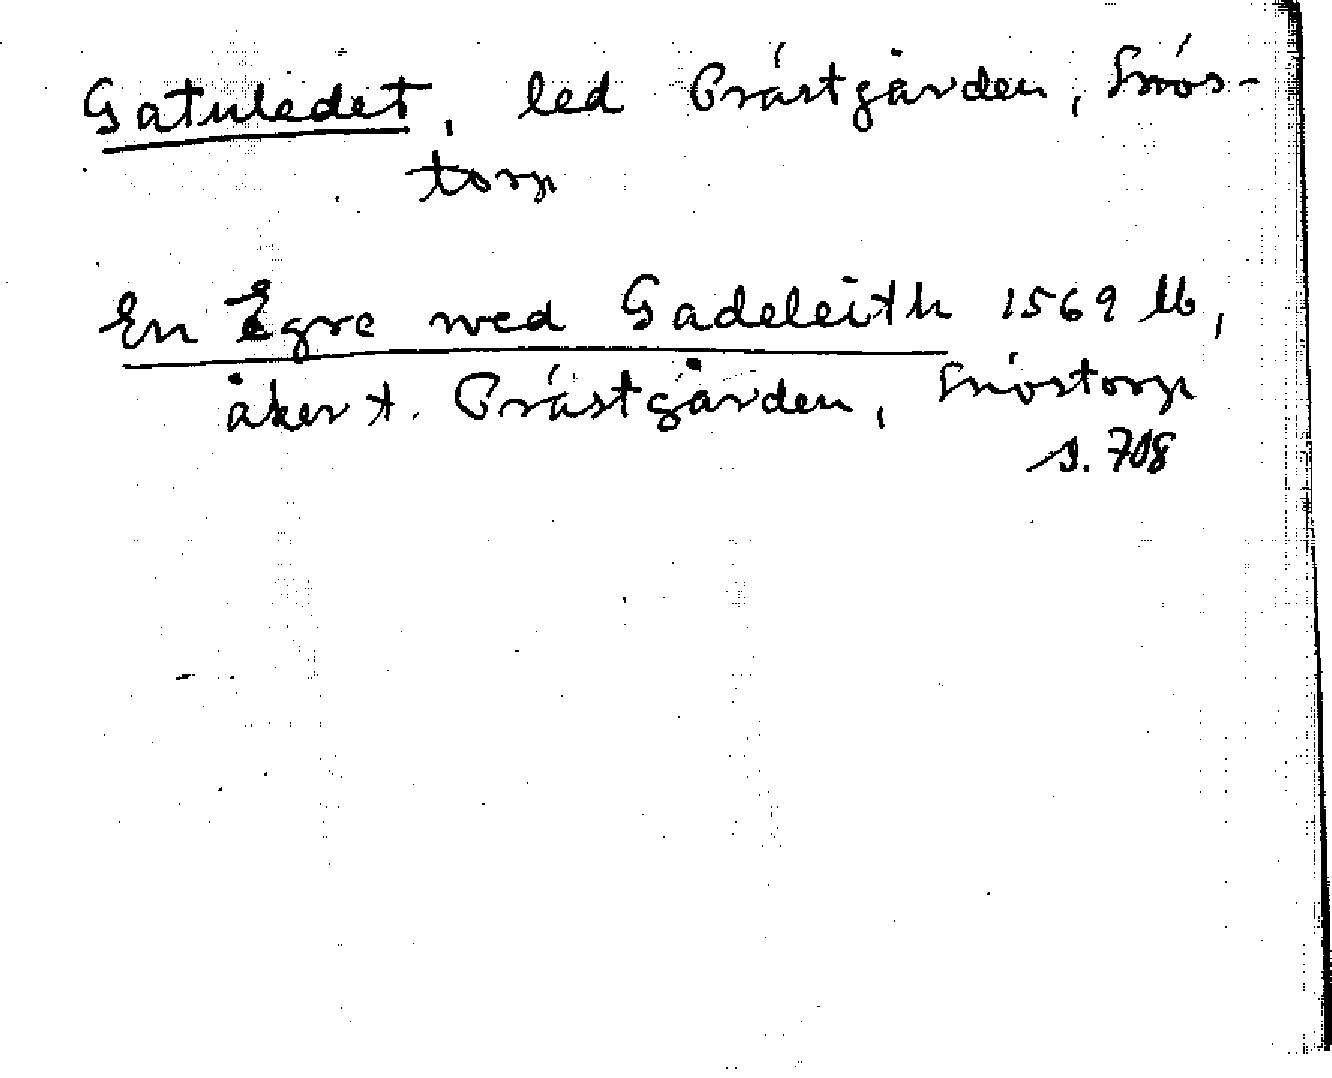 Gatuledet, led Prästgården, Snös-
torp
En Egre wed Gadeleith 1569 lb,
åker t. Prästgården, Snöstorp
s. 708